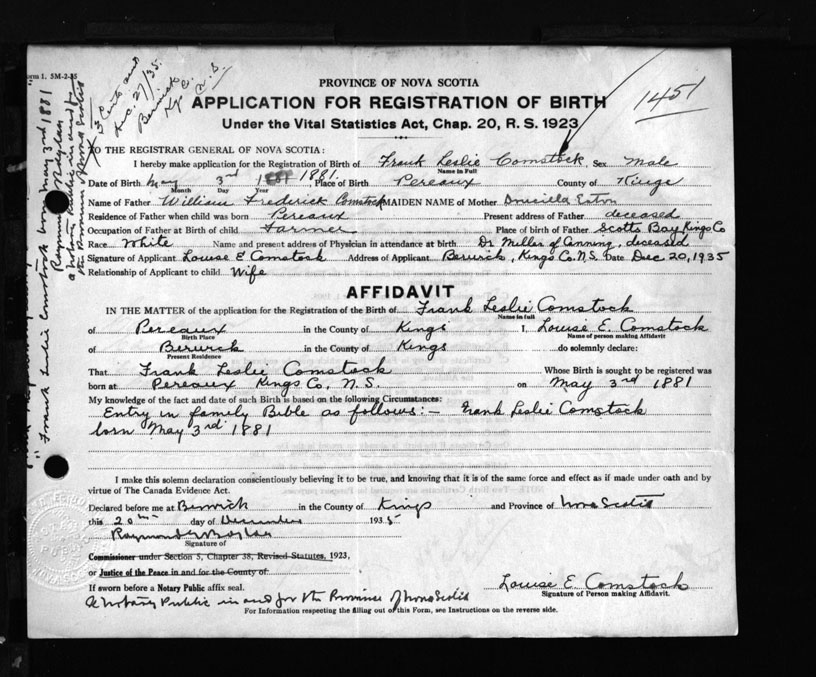 Form 1. 5M-2-35
3 Certs and
Dec. 27/35.
Berwick
N. S.
1451
PROVINCE OF NOVA SCOTIA
APPLICATION FOR REGISTRATION OF BIRTH
Under the Vital Statistics Act, Chap. 20, R. S. 1923
TO THE REGISTRAR GENERAL OF NOVA SCOTIA:
I hereby make application for the Registration of Birth of Frank Leslie Comstock, Sex Male
Name in Full
Date of Birth May 3rd 1881. Place of Birth Pereaux County of Kings
Month Day Year
Name of Father William Frederick Comstock MAIDEN NAME of Mother Drusilla Eaton
Residence of Father when child was born Pereaux Present address of Father deceased
Occupation of Father at Birth of child Farmer Place of birth of Father Scotts Bay Kings Co
Race White Name and present address of Physician in attendance at birth Dr Miller of Canning, deceased
Signature of Applicant Louise E Comstock Address of Applicant Berwick, Kings Co. N.S. Date Dec 20, 1935
Relationship of Applicant to child Wife
AFFIDAVIT
IN THE MATTER of the application for the Registration of the Birth of Frank Leslie Comstock
Name in full
of Pereaux in the County of Kings I, Louise E. Comstock
Birth Place Name of person making Affidavit
of Berwick in the County of Kings do solemnly declare:
Present Residence
That Frank Leslie Comstock Whose Birth is sought to be registered was
born at Pereaux Kings Co, N. S. on May 3rd 1881
My knowledge of the fact and date of such Birth is based on the following Circumstances:
Entry in family Bible as follows:- Frank Leslie Comstock
born May 3rd 1881
I make this solemn declaration conscientiously believing it to be true, and knowing that it is of the same force and effect as if made under oath and by
virtue of The Canada Evidence Act.
Declared before me at Berwick in the County of Kings and Province of Nova Scotia
this 20th day of December 1935
Signature of
Commissioner under Section 5, Chapter 38, Revised Statutes, 1923,
or Justice of the Peace in and for the County of
If sworn before a Notary Public affix seal.
A Notary Public in and for the Province of Nova Scotia
Louise E. Comstock
Signature of Person making Affidavit.
For Information respecting the filling out of this Form, see Instructions on the reverse side.
"Frank Leslie Comstock born May 3rd 1881"
a Notary Public in and for
the Province of Nova Scotia